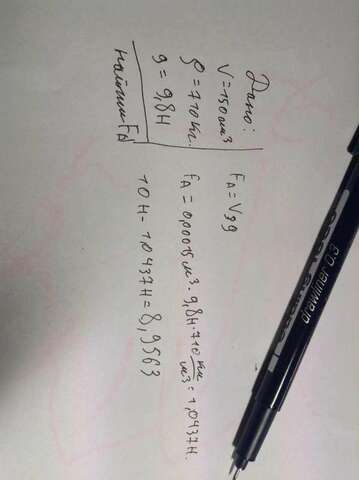 Дано:
V = 150 см³
ρ = 710 кг.
g = 9,8 Н
Найти Fд
Fд = Vρg
Fд = 0,00015 м³ · 9,8Н · 710 кг/м³ = 1,0437Н.
10Н - 1,0437Н = 8,9563
drawliner 0.3